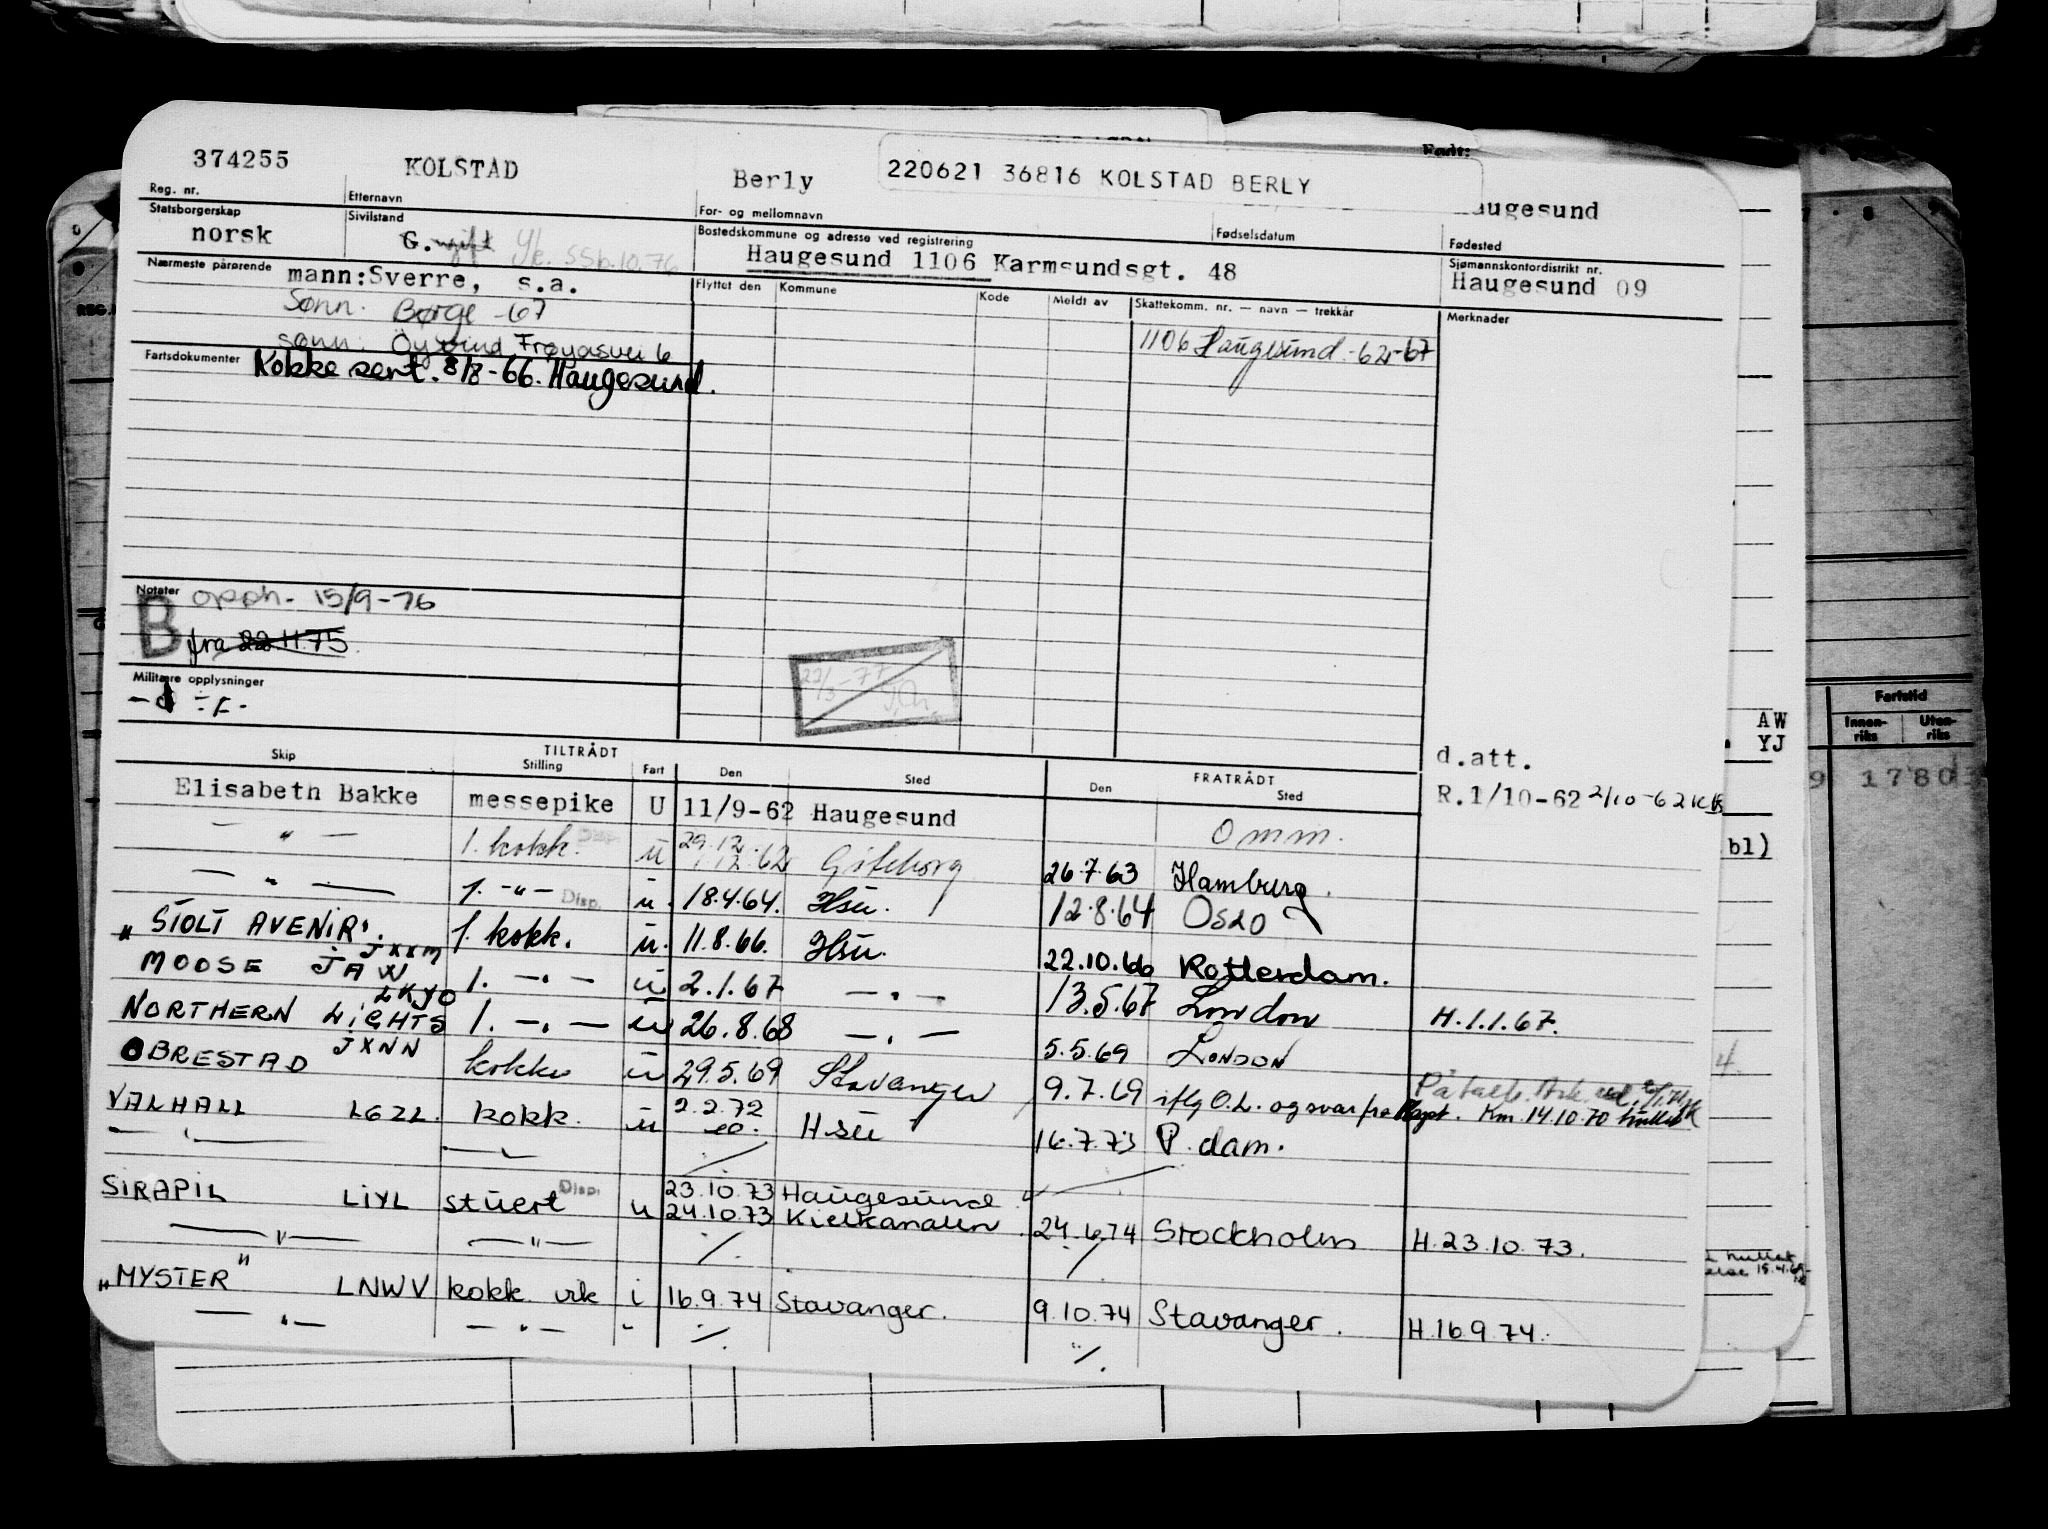 374255 KOLSTAD Berly 220621 36816 KOLSTAD BERLY augesund
Født:
Reg. nr. Etternavn For- og mellomnavn Fødselsdatum Fødested
Statsborgerskap Sivilstand Bostedskommune og adresse ved registrering Sjømannskontordistrikt nr.
norsk G. ugift Haugesund 1106 Karmsundsgt. 48 Haugesund 09
Nærmeste pårørende mann:Sverre, s.a. Flyttet den Kommune Kode Meldt av Skattekomm. nr. — navn — trekkår Merknader
Sønn: Børge -67
1106 Haugesund -62-67
sønn: Öyvind Frøyasvei 6
Fartsdokumenter Kokke sert. 8/8-66. Haugesund.
Notater opph. 15/9-76
B fra 22.11.75
Militære opplysninger
22/3-77
d.att.
Skip TILTRÅDT Stilling Fart Den Sted FRATRÅDT Den Sted
Elisabeth Bakke messepike U 11/9-62 Haugesund Omm. R.1/10-62 2/10-62
— " — 1. kokk. Disp. u 29.12 1.12.62 Göteborg 26.7.63 Hamburg.
— " — 1. -"- Disp. u. 18.4.64. Hsu. 12.8.64 Oslo
"STOLT AVENIR". JXXM 1. kokk. u. 11.8.66. Hsu. 22.10.66 Rotterdam.
MOOSE JAW LKYO 1. — " — u 2.1.67 — " — 13.5.67 London H.1.1.67.
NORTHERN LIGHTS JXNN 1. — " — u 26.8.68 — " — 5.5.69 LONDON
OBRESTAD kokke u 29.5.69 Stavanger 9.7.69 iflg O.L. og svar fra Kapt. Km.14.10.70
VALHALL LGZL. kokk. u 2.2.72 Hsu 16.7.73 P. dam.
— " — — " —
SIRAPIL LIYL stuert Disp. u 23.10.73 Haugesund
24.10.73 Kielkanalen 24.6.74 Stockholm H.23.10.73.
— " — — " —
"MYSTER" LNWV kokk vik i 16.9.74 Stavanger. 9.10.74 Stavanger. H.16.9.74.
— " — — " — "
AW
YJ
bl)
Fartstid
Innen-riks Uten-riks
9 1780